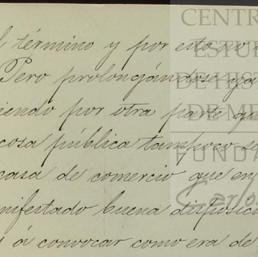 l término y por esto no
Pero prolongándose ya
iendo por otra parte que
cosa pública tampoco se
casa de comercio que en
nifestado buena disposici
s á convocar como era de
CENTR
ESTU
DE HIS
DE ME
FUNDA
Carlos